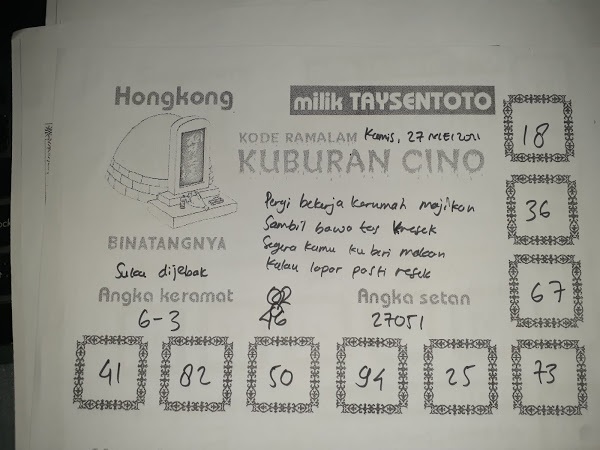 Hongkong
milik TAYSENTOTO
KODE RAMALAM Kamis, 27 MEI 2021
KUBURAN CINO
18
Pergi bekerja kerumah majikan
Sambil bawa tas kresek
Segera kamu ku beri makan
Kalau lapar pasti resek
36
BINATANGNYA
Suka dijebak
Angka keramat
6-3
46
Angka setan
27051
67
41
82
50
94
25
73